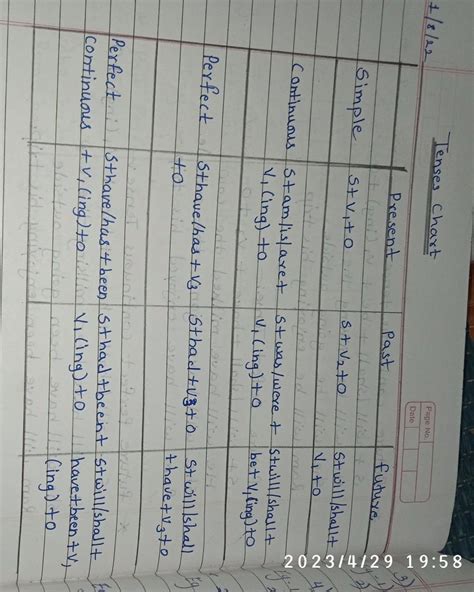 1/8/22
Page No.
Date
Tenses Chart
Present Past future
Simple S+V1+O S+V2+O S+will/shall+
V1+O
Continuous S+am/is/are+ S+was/were+ S+will/shall+
V1(ing)+O V1(ing)+O be+V1(ing)+O
Perfect S+have/has+V3 S+had+V3+O S+will/shall
+O +have+V3+O
Perfect S+have/has+been S+had+been+ S+will/shall+
continuous +V1(ing)+O V1(ing)+O have+been+V1
(ing)+O
2023/4/29 19:58